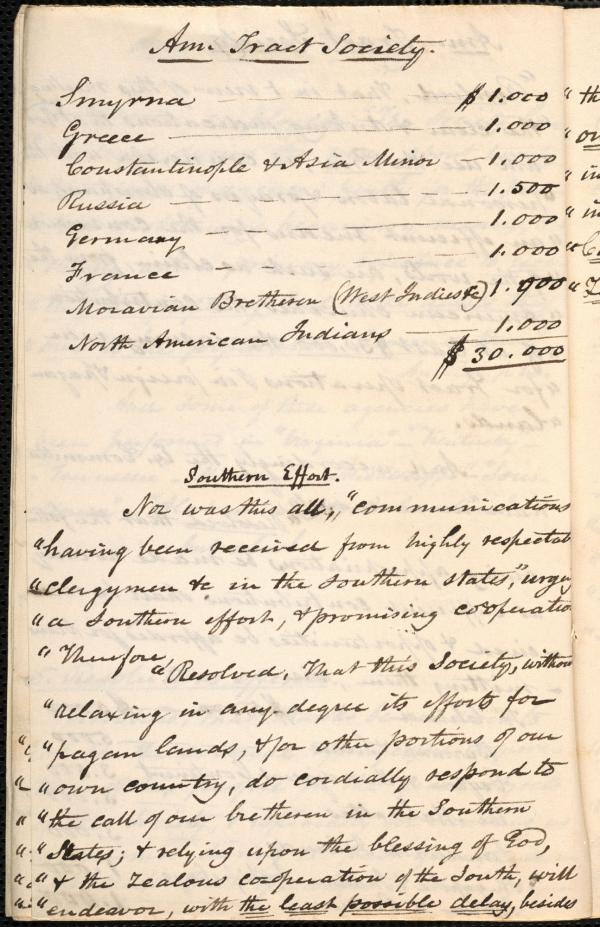 Am. Tract Society.
Smyrna — $ 1.000
Greece — 1.000
Constantinople & Asia Minor — 1.000
Russia — 1.500
Germany — 1.000
France — 1.000
Moravian Bretheren (West Indies &c) 1.900
North American Indians — 1.000
$ 30.000
Southern Effort.
Nor was this all; "communications
"having been received from highly respectab
"clergymen &c in the southern states," urging
"a southern effort, & promising coöperatio
"Therefore,
"Resolved. That this Society, without
"relaxing in any degree its efforts for
"pagan lands, & for other portions of our
"own country, do cordially respond to
"the call of our bretheren in the Southern
"States; & relying upon the blessing of God,
"& the zealous co-operation of the South, will
"endeavor, with the least possible delay, besides